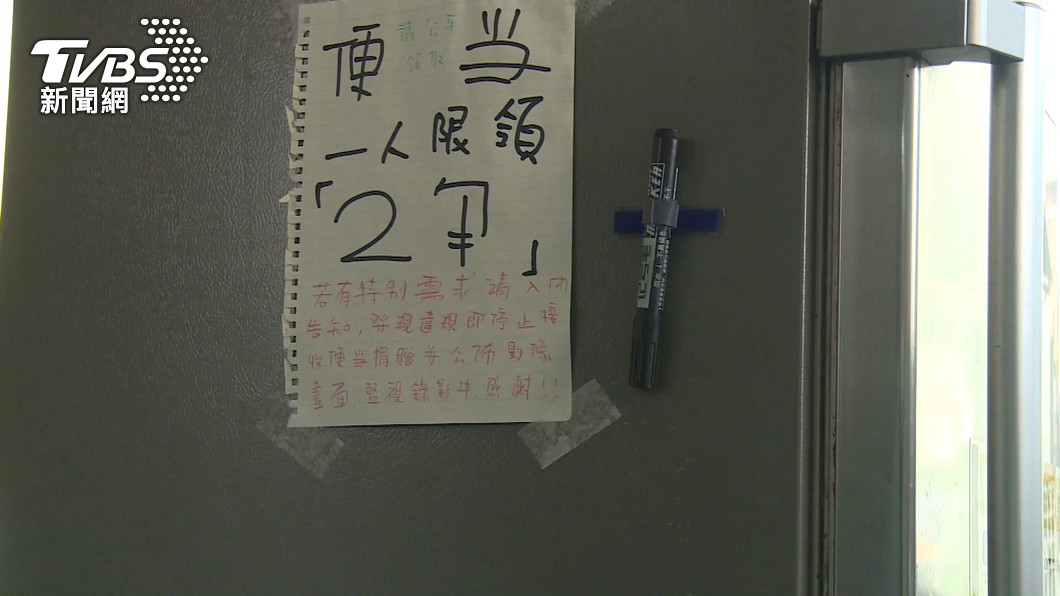 TVBS
新聞網
請公平
領取
便当
一人限領
「2 」
若有特別需求請入內
告知,發現違規即停止接
收便当捐贈并公布影像
畫面 監視錄影中 感謝!!
KER